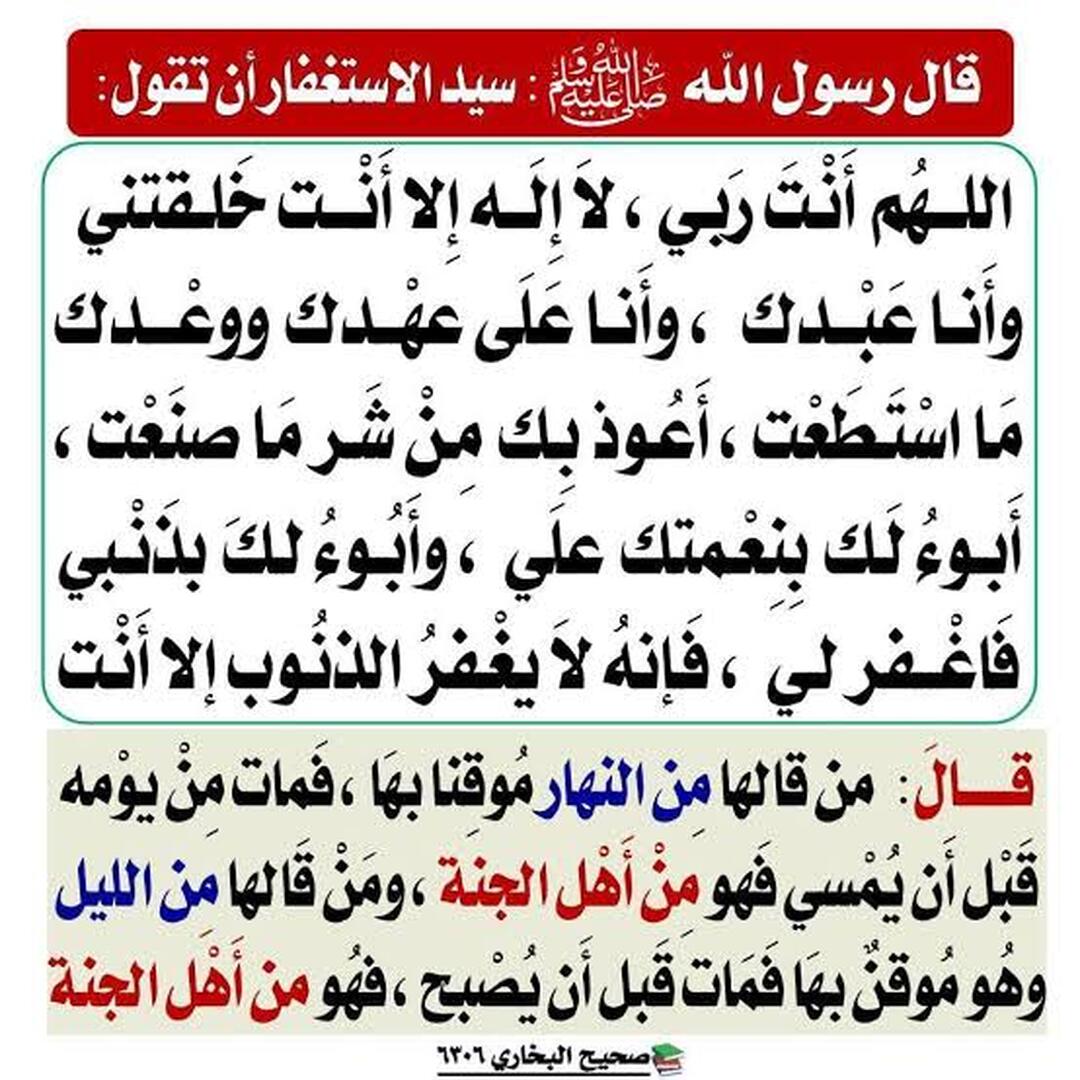 قال رسول الله ﷺ : سيد الاستغفار أن تقول:
اللـهُم أَنْتَ رَبِي ، لاَ إِلَـه إِلا أَنْـت خَلـقتني
وأَنـا عَبْـدك ، وأَنـا عَلَى عهْـدك ووعْـدك
مَا اسْتَطَعْت ، أَعُوذ بِك مِنْ شَر مَا صنَعْت ،
أَبـوءُ لَك بِنِعْمتك علَي ، وأَبُـوءُ لكَ بذَنْـبي
فَاغْـفر لي ، فَإنهُ لاَ يغْفرُ الذنُوب إلا أَنْت
قـالَ: من قالها مِن النهار مُوقِنا بهَا ، فَمات مِنْ يوْمه
قَبْل أَن يُمْسي فَهو مِنْ أَهْل الجنة ، ومَنْ قَالها مِن الليل
وهُو مُوقنٌ بهَا فَمَات قَبل أَن يُصْبح ، فهُو من أَهْل الجنة
صحيح البخاري ٦٣٠٦